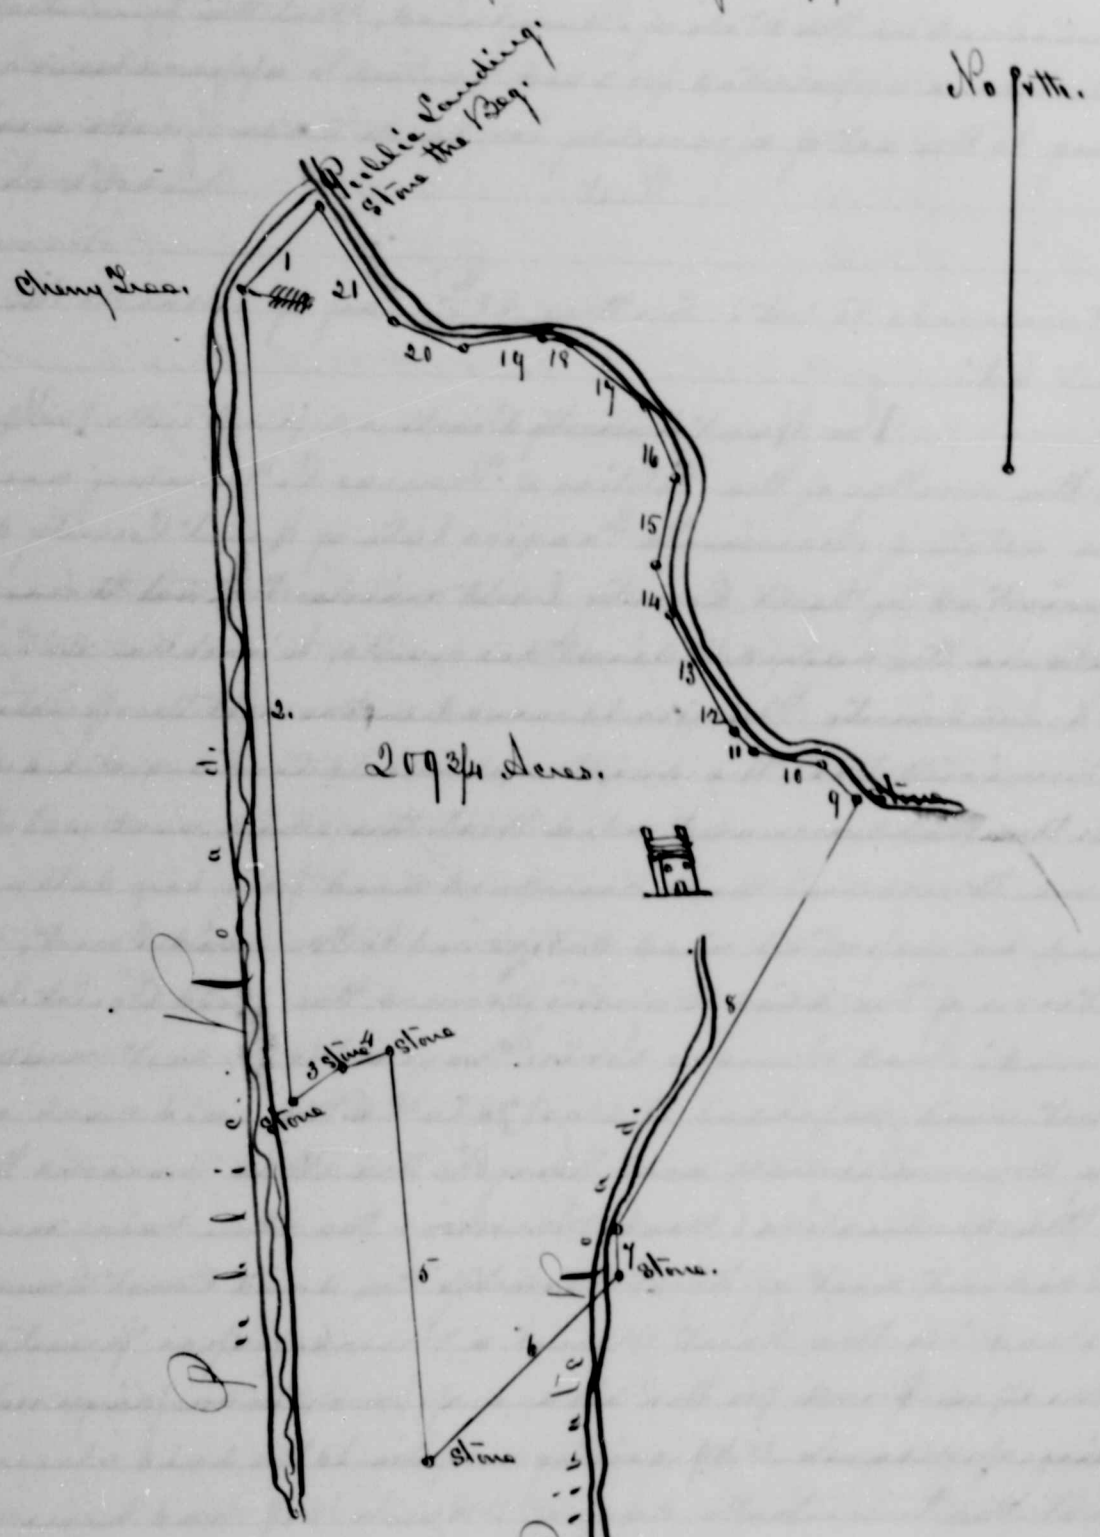 Public Landing.
Stone the Beg.
North.
Cherry Tree.
1
21
20
19
18
17
16
15
14
13
12
11
10
9
Stone
2.
209 3/4 Acres.
8
3
Stone
4
Stone
Stone
5
6
7
Stone.
Stone
Public Road.
Private Road.